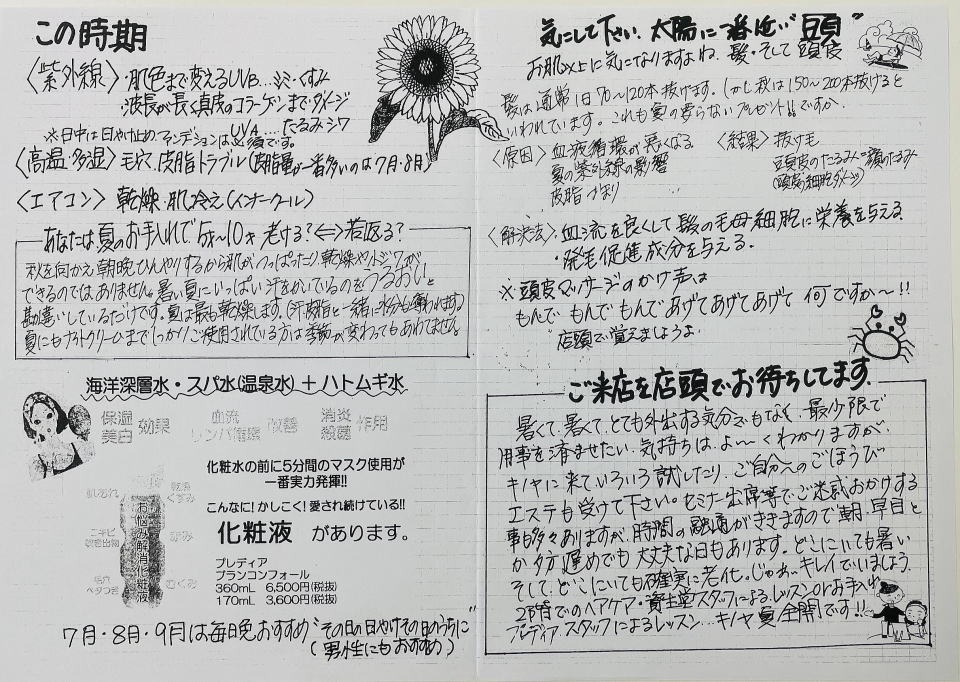 この時期
〈紫外線〉・肌色まで変えるUVB…シミ・くすみ
・波長が長く真皮のコラーゲンまでダメージ
UVA…たるみシワ
※日中は日やけ止め、ファンデーションは必須です。
〈高温多湿〉毛穴、皮脂トラブル(皮脂量が一番多いのは7月・8月)
〈エアコン〉乾燥・肌冷え(インナークール)
あなたは夏のお手入れで5才〜10才老ける?⇔若返る?
秋を向かえ朝晩ひんやりするから肌がつっぱったり乾燥やカンジワが
できるのではありません。暑い夏にいっぱい汗をかいているのをうるおいと
勘違いしているだけです。夏は最も乾燥します。(汗、皮脂と一緒に水分も奪われます)
夏にもナイトクリームまでしっかりご使用されている方は季節が変わってもあわてません。
海洋深層水・スパ水(温泉水)+ハトムギ水
保湿 美白 効果
血流 リンパ循環 改善
消炎 殺菌 作用
化粧水の前に5分間のマスク使用が
一番実力発揮!!
こんなに!かしこく!愛され続けている!!
化粧液 があります。
肌あれ
乾燥 くすみ
ニキビ 吹き出物
毛穴 ベタつき
むくみ
お悩み解消化粧液
プレディア
ブランコンフォール
360mL 6,500円(税抜)
170mL 3,600円(税抜)
7月・8月・9月は毎日晩おすすめ"その日の日やけその日のうちに"
(男性にもおすすめ)
気にして下さい、太陽に一番近い"頭"
お肌以上に気になりますよね、髪・そして頭皮
髪は通常1日70〜120本抜けます。しかし秋は150〜200本抜けると
いわれています。これも夏の要らないプレゼント!!ですか。
〈原因〉血液循環が悪くなる
夏の紫外線の影響
皮脂づまり
〈結果〉抜け毛
頭皮のたるみ=顔のたるみ
(頭皮の細胞ダメージ)
〈解決法〉・血流を良くして髪の毛母細胞に栄養を与える
・発毛促進成分を与える。
※頭皮マッサージのかけ声は
もんで もんで もんで あげて あげて あげて 何ですか〜!!
店頭で覚えましょうよ
ご来店を店頭でお待ちしてます。
暑くて、暑くて、とても外出する気分でもなく、最少限で
用事を済ませたい。気持ちは、よ〜くわかりますが、
キノヤに来ていろいろ試したり、ご自分へのごほうび
エステも受けて下さい。セミナー出席等でご迷惑おかけする
事も多々ありますが、時間の融通がききますので朝、早目と
か夕方遅めでも大丈夫な日もあります。どこにいても暑い
そして、どこにいても確実に老化。じゃあ、キレイでいましょう。
2階でのヘアケア・資生堂スタッフによるレッスンのお手入れ
プレディアスタッフによるレッスン…キノヤ夏全開です!!